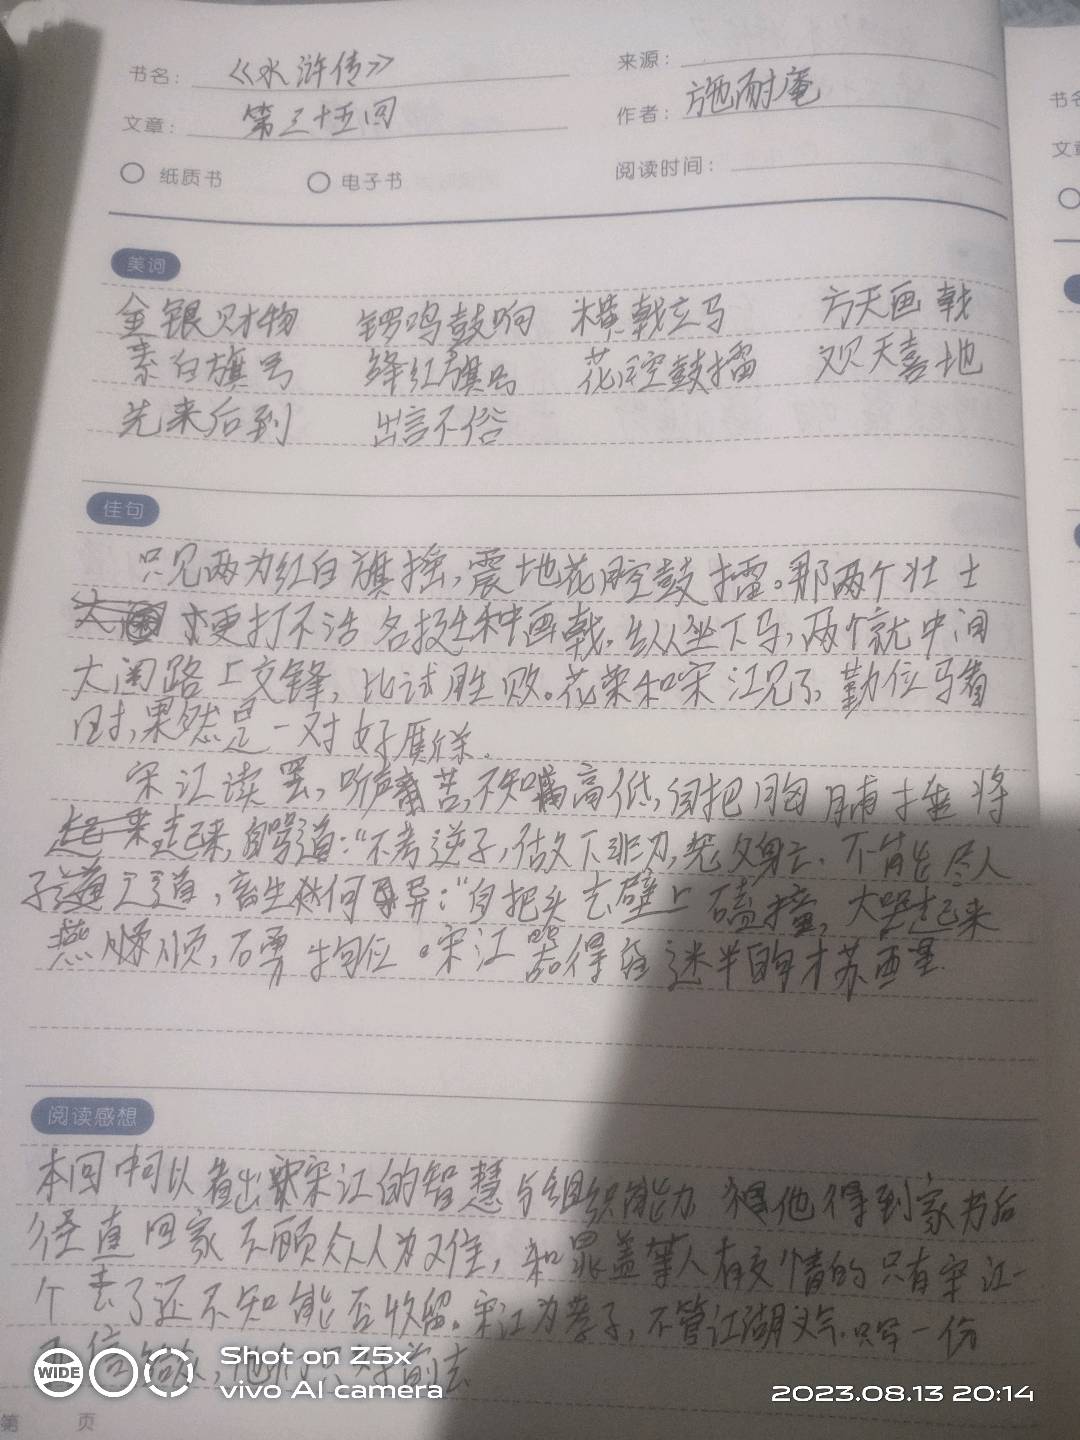 书名： 《水浒传》 来源：
文章： 第三十五回 作者： 施耐庵
纸质书 电子书 阅读时间：
美词
金银财物 锣鸣鼓响 横戟立马 方天画戟
素白旗号 绛红旗号 花腔鼓擂 欢天喜地
先来后到 出言不俗
佳句
只见两为红白旗摇，震地花腔鼓擂。那两个壮士
更打不话 各挺手种画戟，纵坐下马，两个就中间
大阔路上交锋，比试胜败。花荣和宋江见了，勤位马看
时，果然是一对好厮杀。
宋江读罢，叫声苦，不知高低，自把胸脯捶将
起来，自骂道：“不孝逆子，做下非为，老父身亡，不能尽人
子之道，畜生何异：”自把头去壁上磕撞，大哭起来
燕顺，石勇抱位。宋江哭得迷半晌才苏醒
阅读感想
本回中可以看出宋江的智慧与组织能力 他得到家书后
径直回家不顾众人为难，和晁盖等人有交情的只有宋江一
个 去了还不知能否收留。宋江为孝子，不管江湖义气，只写一份
信给众，他们只 前去
第 页
书名
文章
WIDE
Shot on Z5x
vivo AI camera
2023.08.13 20:14